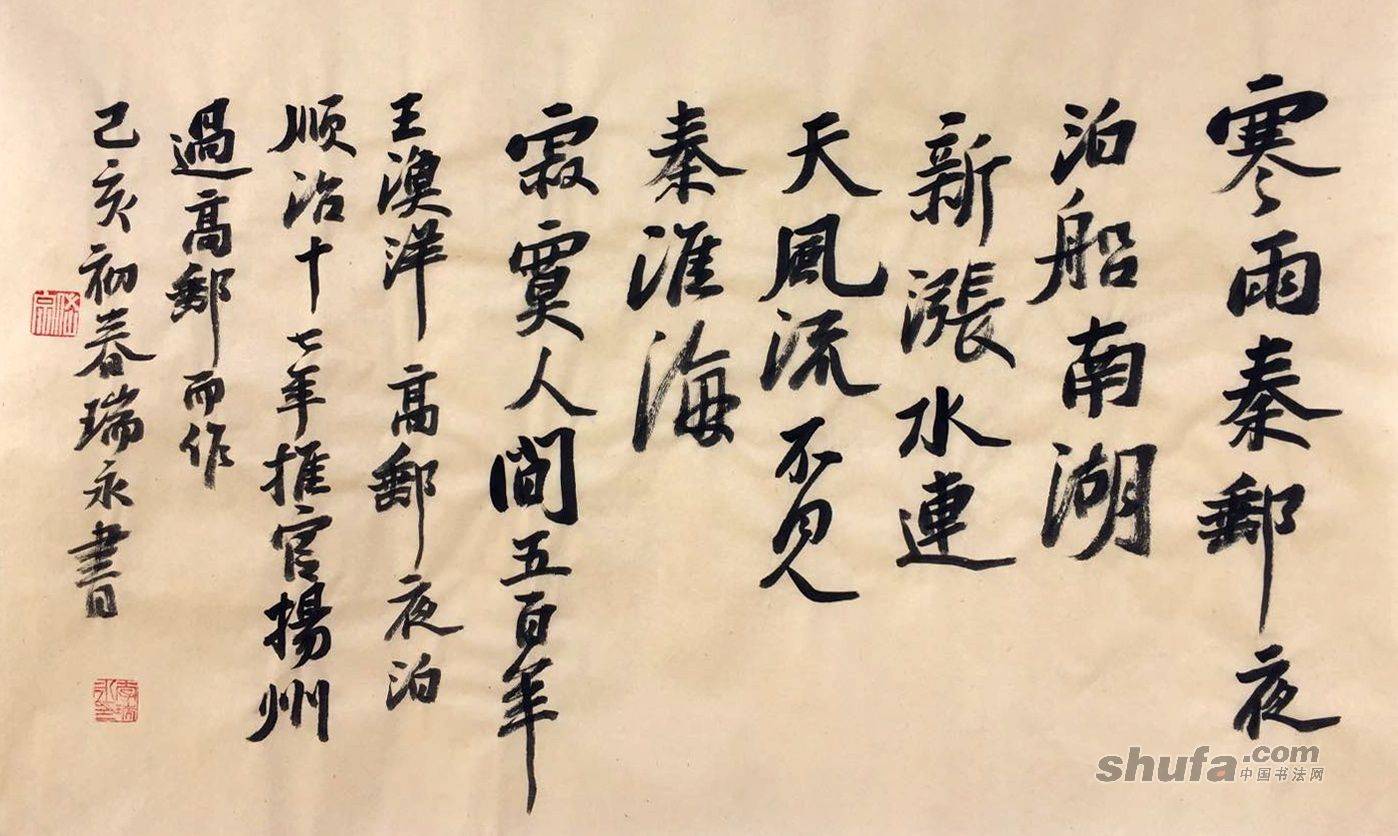 寒雨秦郵夜
泊船南湖
新漲水連
天風流不見
秦淮海
寂寞人間五百年
王漁洋高郵夜泊
順治十七年推官揚州
過高郵而作
己亥初春瑞永書
shufa.com
中国书法网